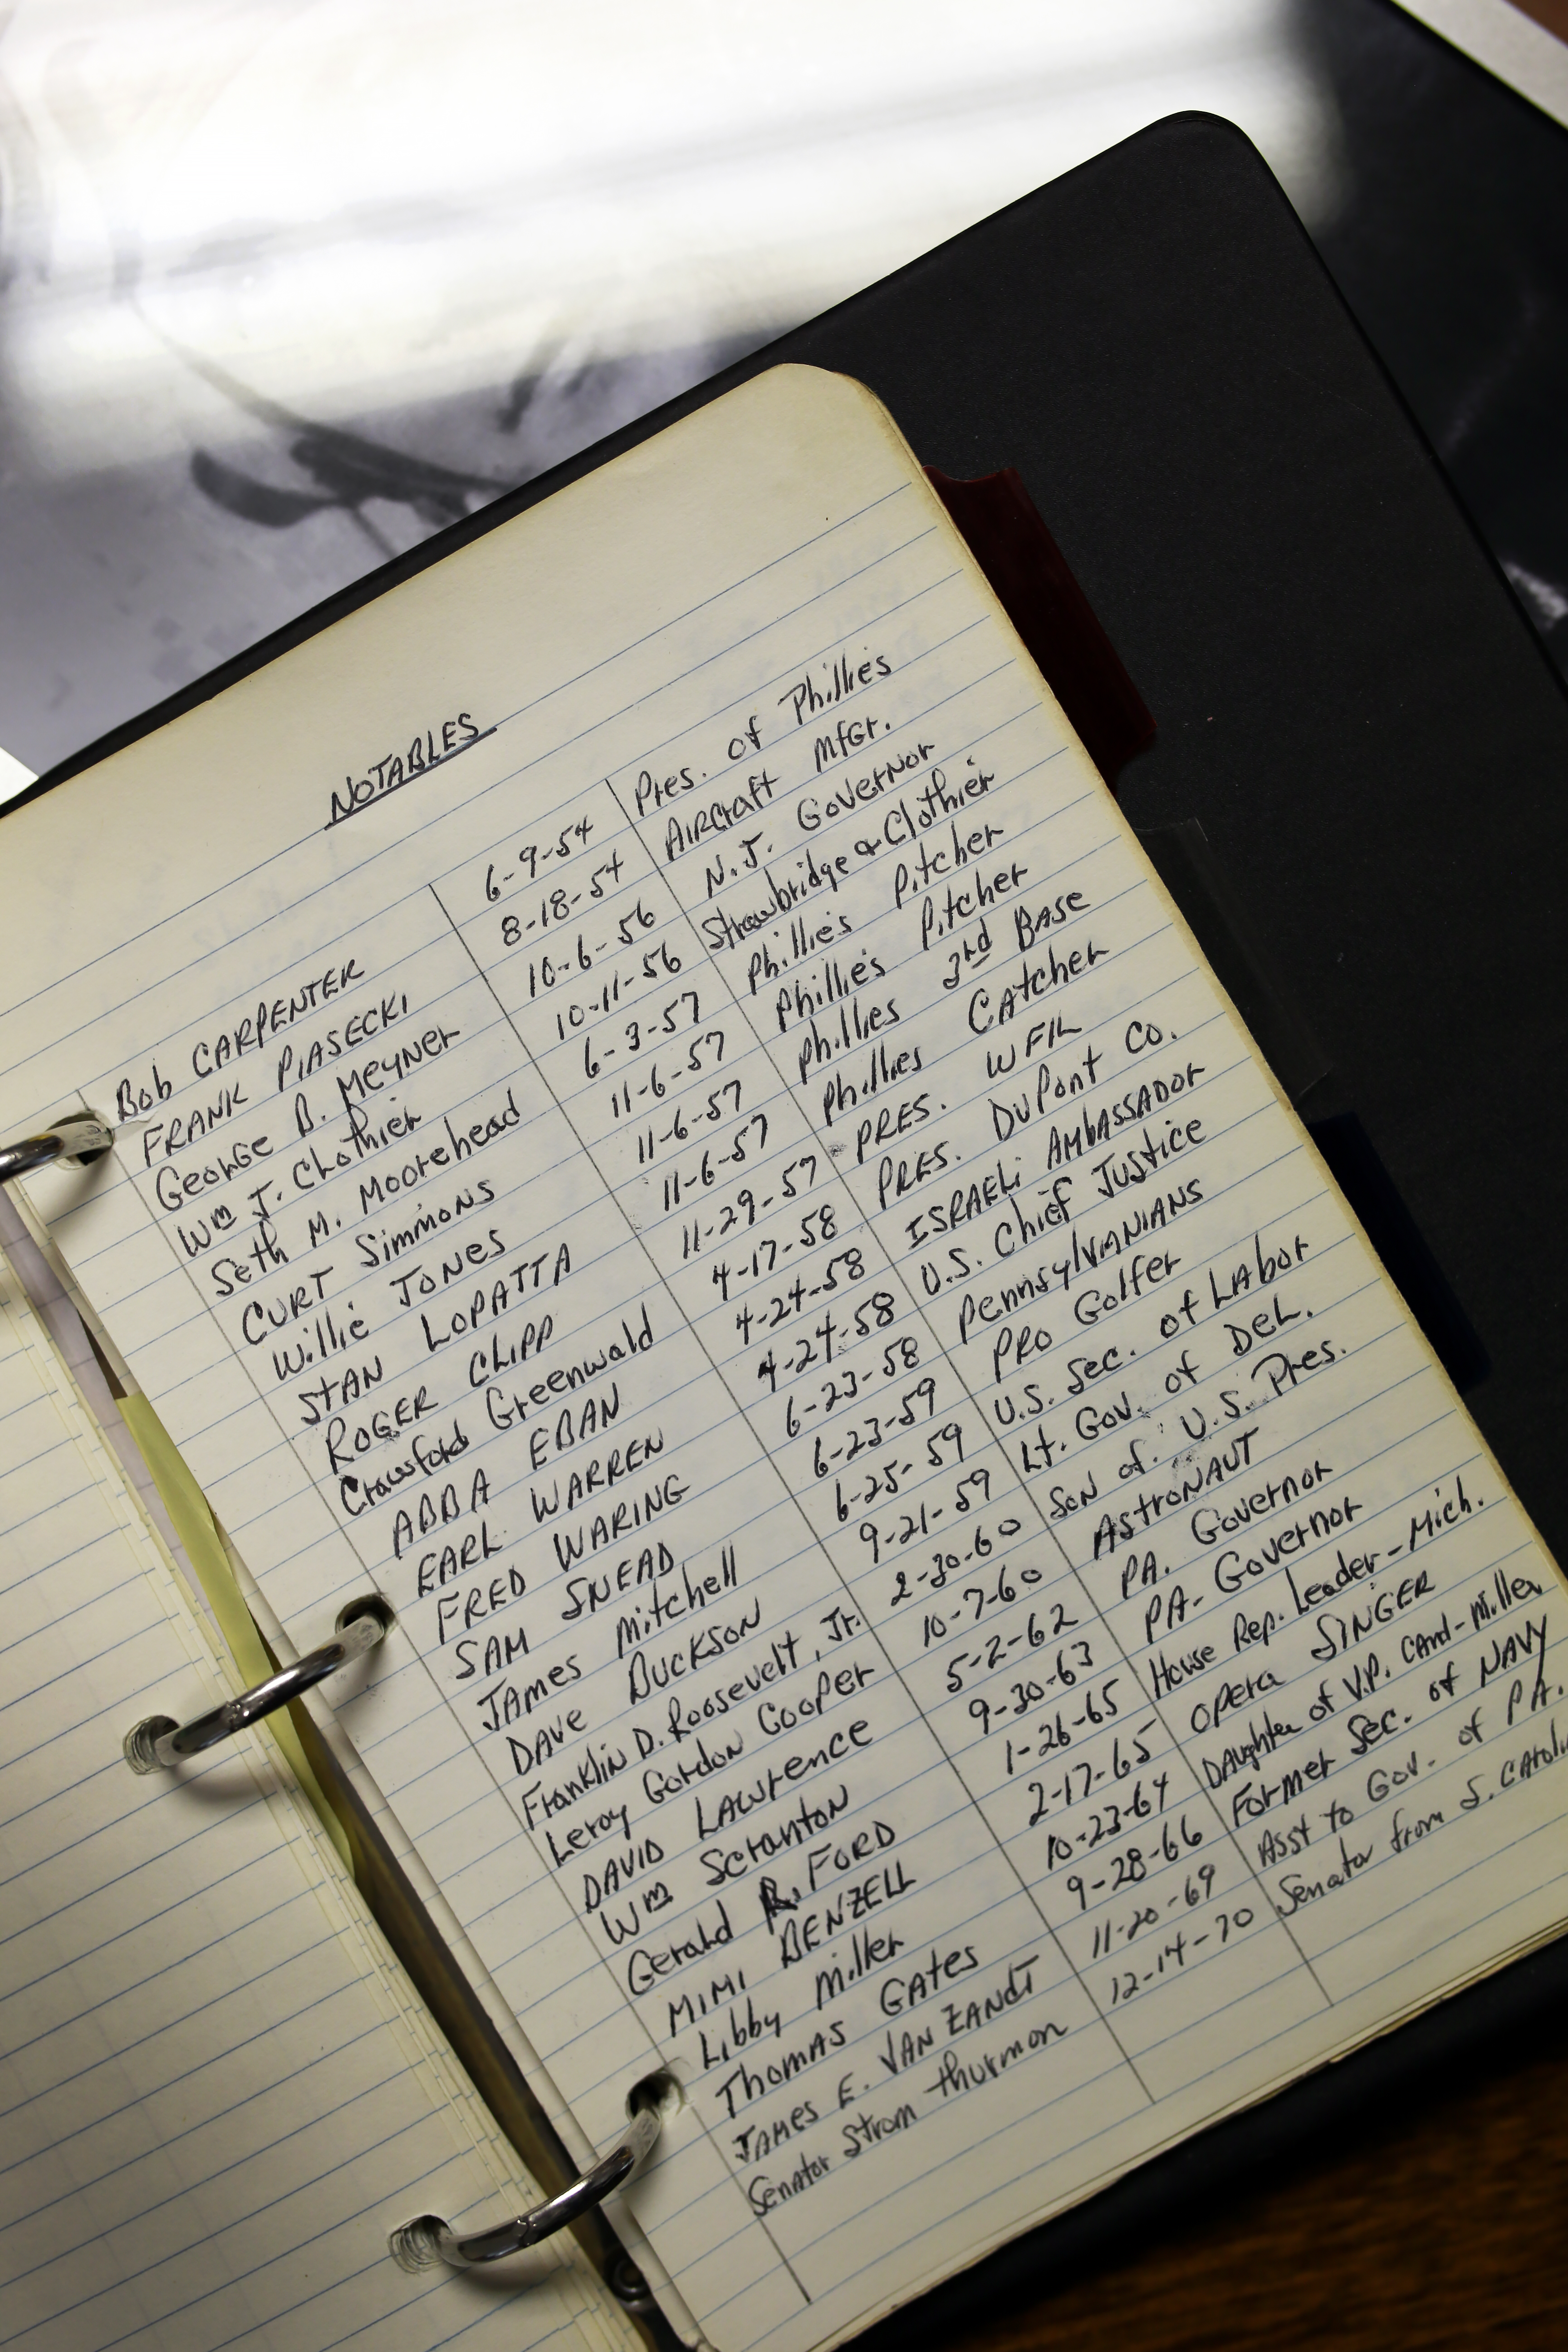 NOTABLES
Bob CARPENTER 6-9-54 Pres. of Phillies
FRANK PIASECKI 8-18-54 AIRCraft MfGr.
George B. Meyner 10-6-56 N.J. Governor
Wm J. Clothier 10-11-56 Strawbridge & Clothier
Seth M. Moorehead 6-3-57 Phillies Pitcher
CURT Simmons 11-6-57 Phillies Pitcher
Willie JONES 11-6-57 Phillies 3rd BASE
STAN LOPATTA 11-6-57 Phillies CAtcher
ROGER CLIPP 11-29-57 PRES. WFIL
Crawford Greenwald 4-17-58 PRES. DuPont Co.
ABBA EBAN 4-24-58 ISRAELi AMbASSADOR
EARL WARREN 4-24-58 U.S. Chief JUStice
FRED WARING 6-23-58 PennsylVANIANS
SAM SNEAD 6-23-59 PRO Golfer
JAmes Mitchell 6-25-59 U.S. Sec. of Labor
DAVE BUCKSON 9-21-59 Lt. Gov. of DeL.
Franklin D. Roosevelt, Jr. 2-30-60 Son of U.S. Pres.
Leroy Gordon Cooper 10-7-60 AStroNAUT
DAVID LAWrence 5-2-62 PA. Governor
Wm ScrantoN 9-30-63 PA. Governor
Gerald R. FORD 1-26-65 House Rep. Leader-Mich.
MIMI BENZELL 2-17-65 Opera SINGER
Libby Miller 10-23-64 DAughter of V.P. CAnd-Miller
Thomas GAtes 9-28-66 Former Sec. of NAVY
JAMES E. VAN ZANdT 11-20-69 Asst to Gov. of PA.
Senator Strom thurmon 12-14-70 Senator from S. Carolin